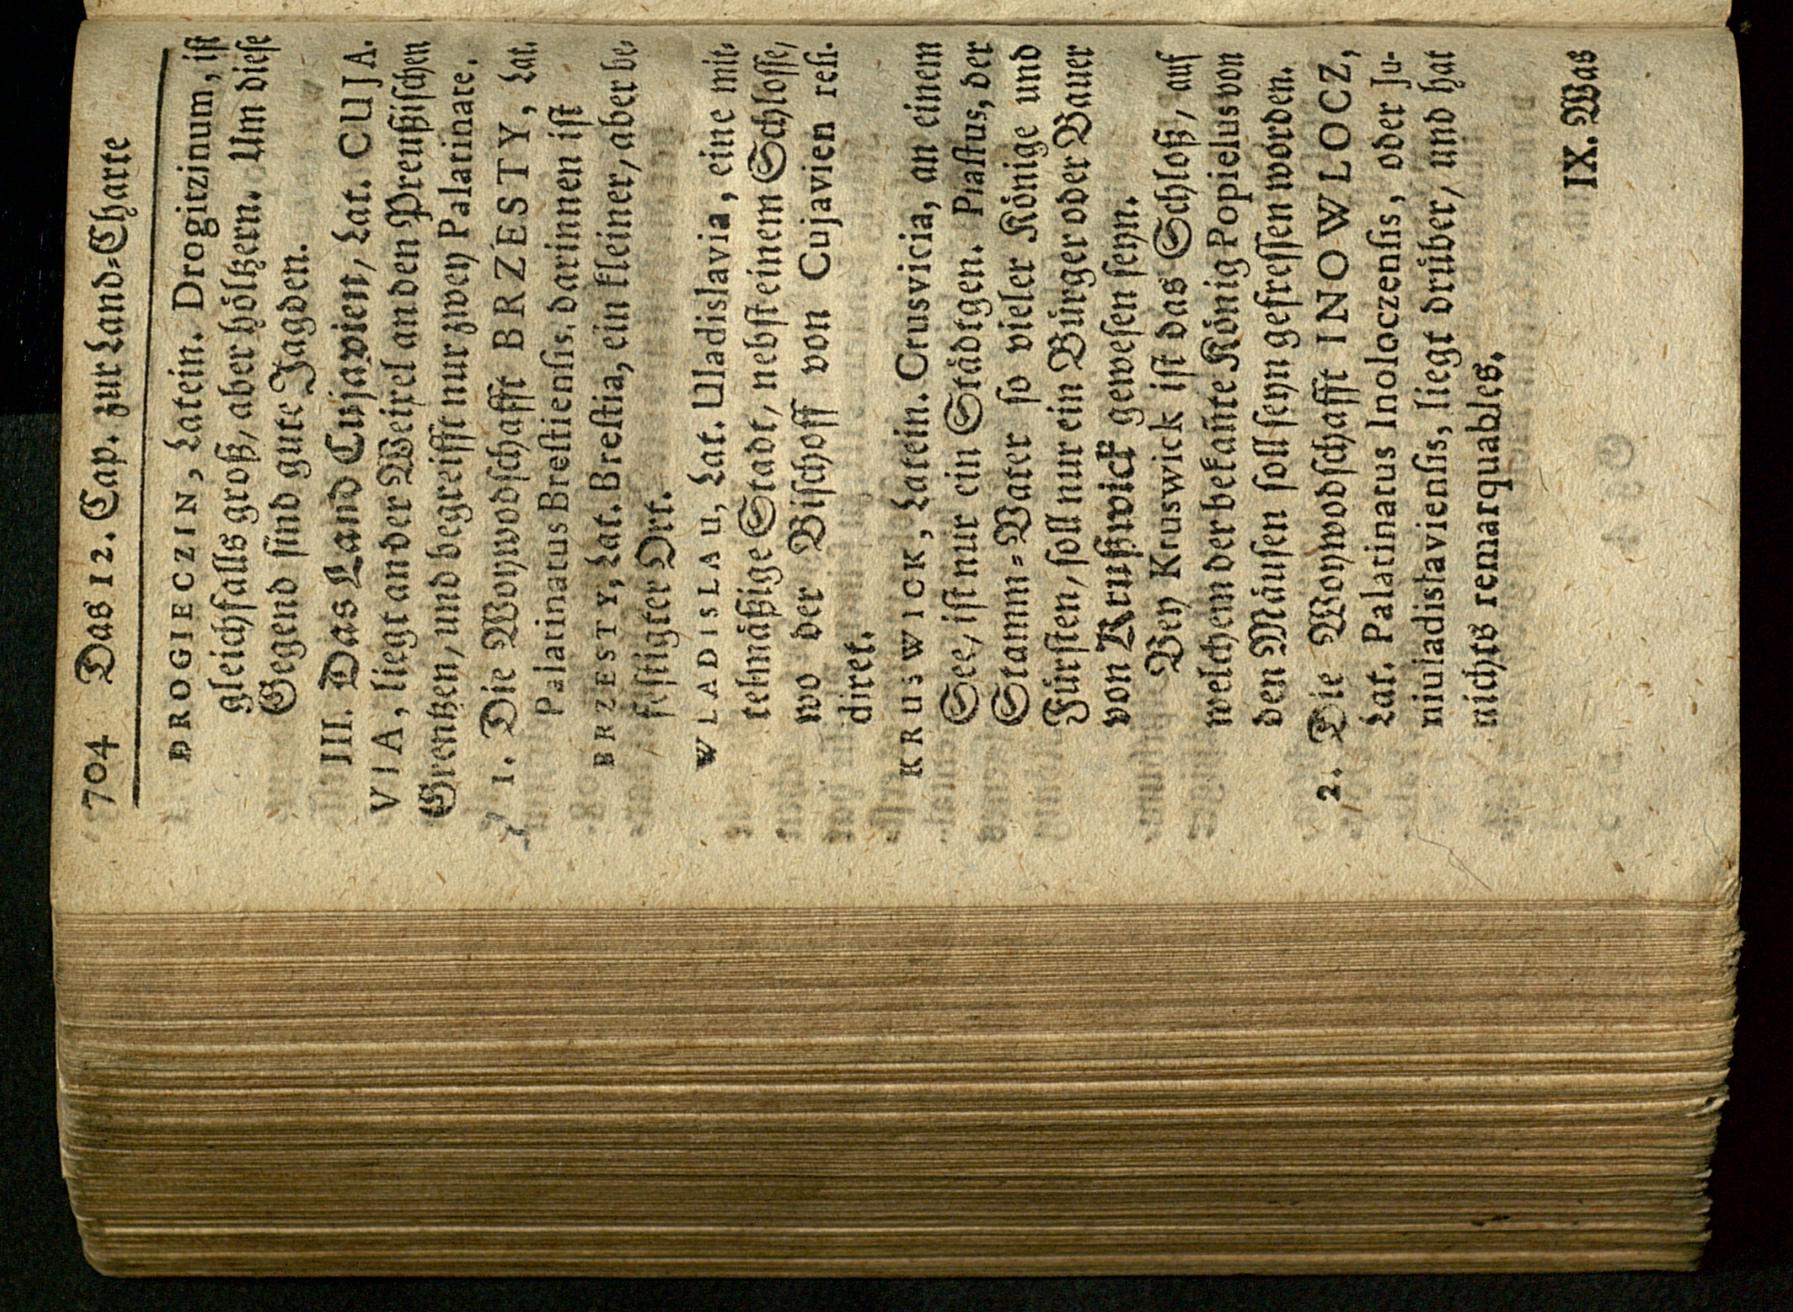 704 Das 12. Cap. zur Land-Charte
DROGIECZIN, Latein. Drogitzinum, ist
gleichfalls groß, aber höltzern. Um diese
Gegend sind gute Jagden.
III. Das Land Cujavien, Lat. CUJA-
VIA, liegt an der Weixel an den Preußischen
Grentzen, und begreifft nur zwey Palatinate.
1. Die Woywodschafft BRZESTY, Lat.
Palatinatus Brestiensis, darinnen ist
BRZESTY, Lat. Brestia, ein kleiner, aber be-
festigter Ort.
WLADISLAU, Lat. Uladislavia, eine mit-
telmäßige Stadt, nebst einem Schlosse,
wo der Bischoff von Cujavien resi-
diret.
KRUSWICK, Latein. Crusvicia, an einem
See, ist nur ein Städtgen. Piastus, der
Stamm-Vater so vieler Könige und
Fürsten, soll nur ein Bürger oder Bauer
von Krußwick gewesen seyn.
Bey Kruswick ist das Schloß, auf
welchem der bekañte König Popielus von
den Mäusen soll seyn gefressen worden.
2. Die Woywodschafft INOWLOCZ,
Lat. Palatinatus Inoloczensis, oder Ju-
niuladislaviensis, liegt drüber, und hat
nichts remarquables.
IX. Was